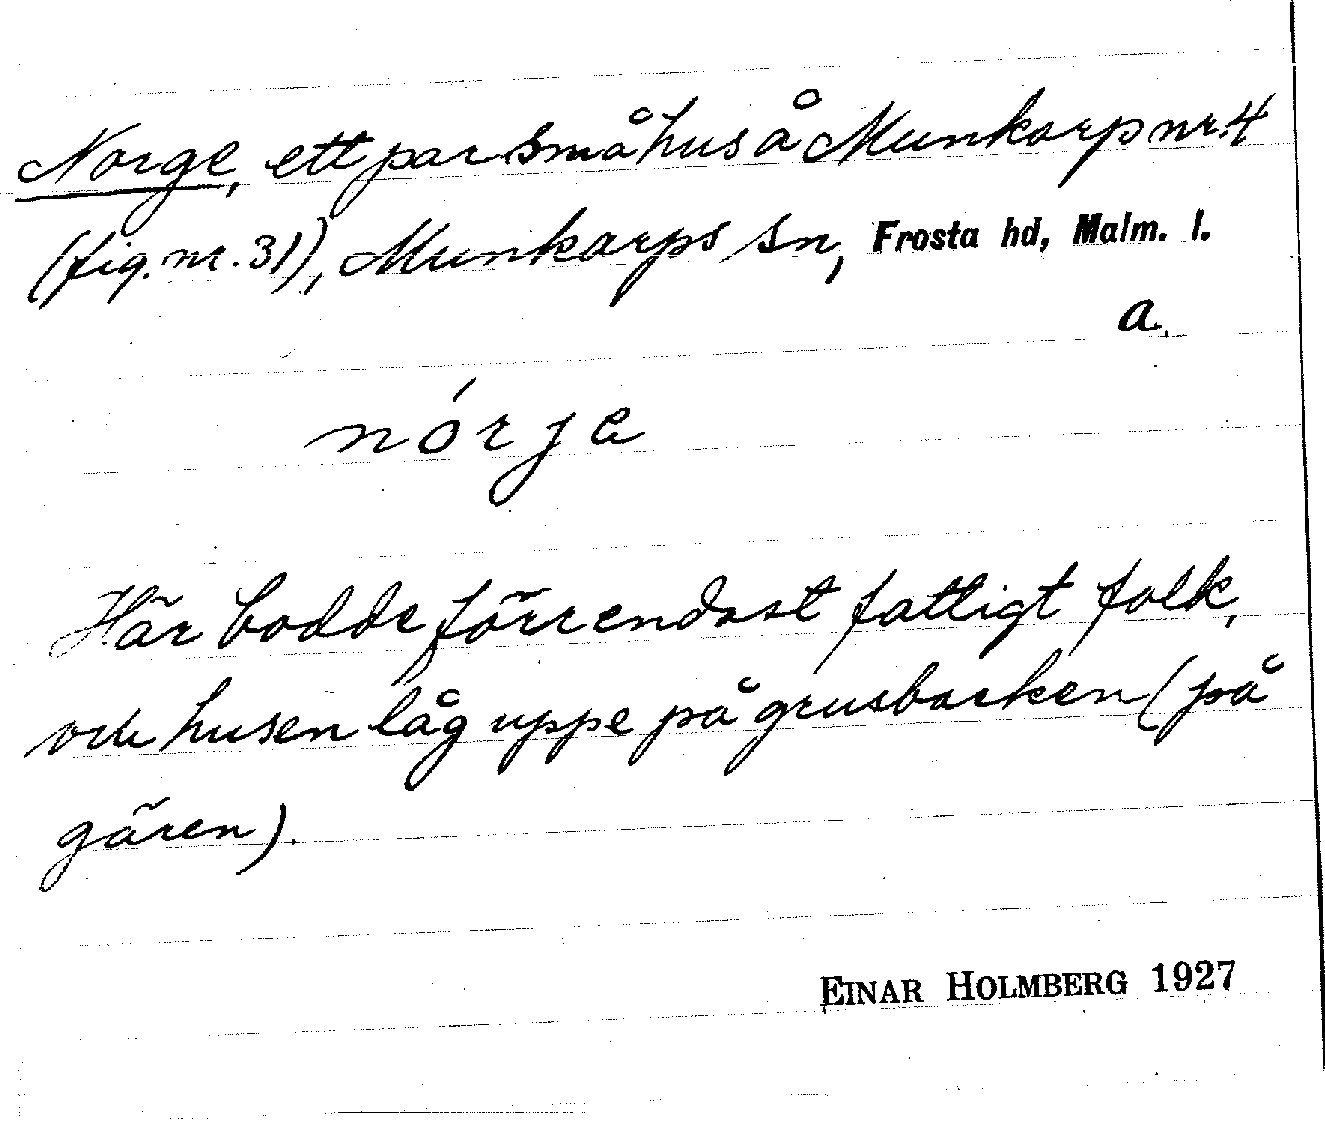 Norge, ett par småhus å Munkarp nr. 4
(fig. nr. 31), Munkarps sn, Frosta hd, Malm. l.
a.
nórja
Här bodde förr endast fattigt folk,
och husen låg uppe på grusbacken (på
gären).
EINAR HOLMBERG 1927